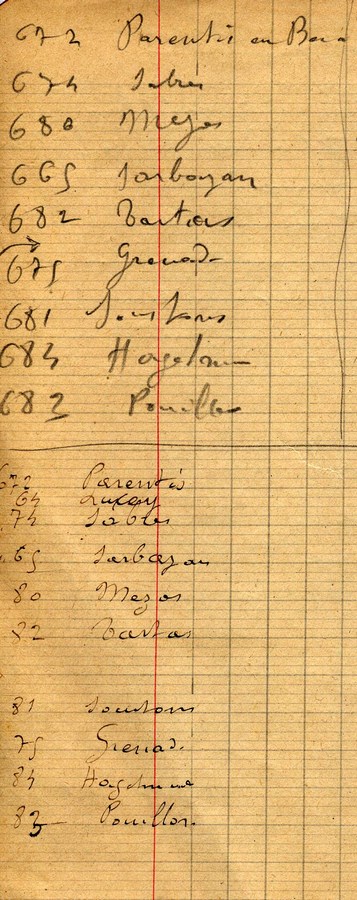 672 Parentis en Bor
674 Sabres
680 Mezos
665 Sarbazan
682 Tartas
675 Grenad
681 Soustons
684 Hagetm
682 Pouillo
672 Parentis
64 Luxey
74 Sabres
65 Sarbazan
80 Mezos
82 Tartas
81 Soustons
75 Grenad.
84 Hagetm
83 Pouillon